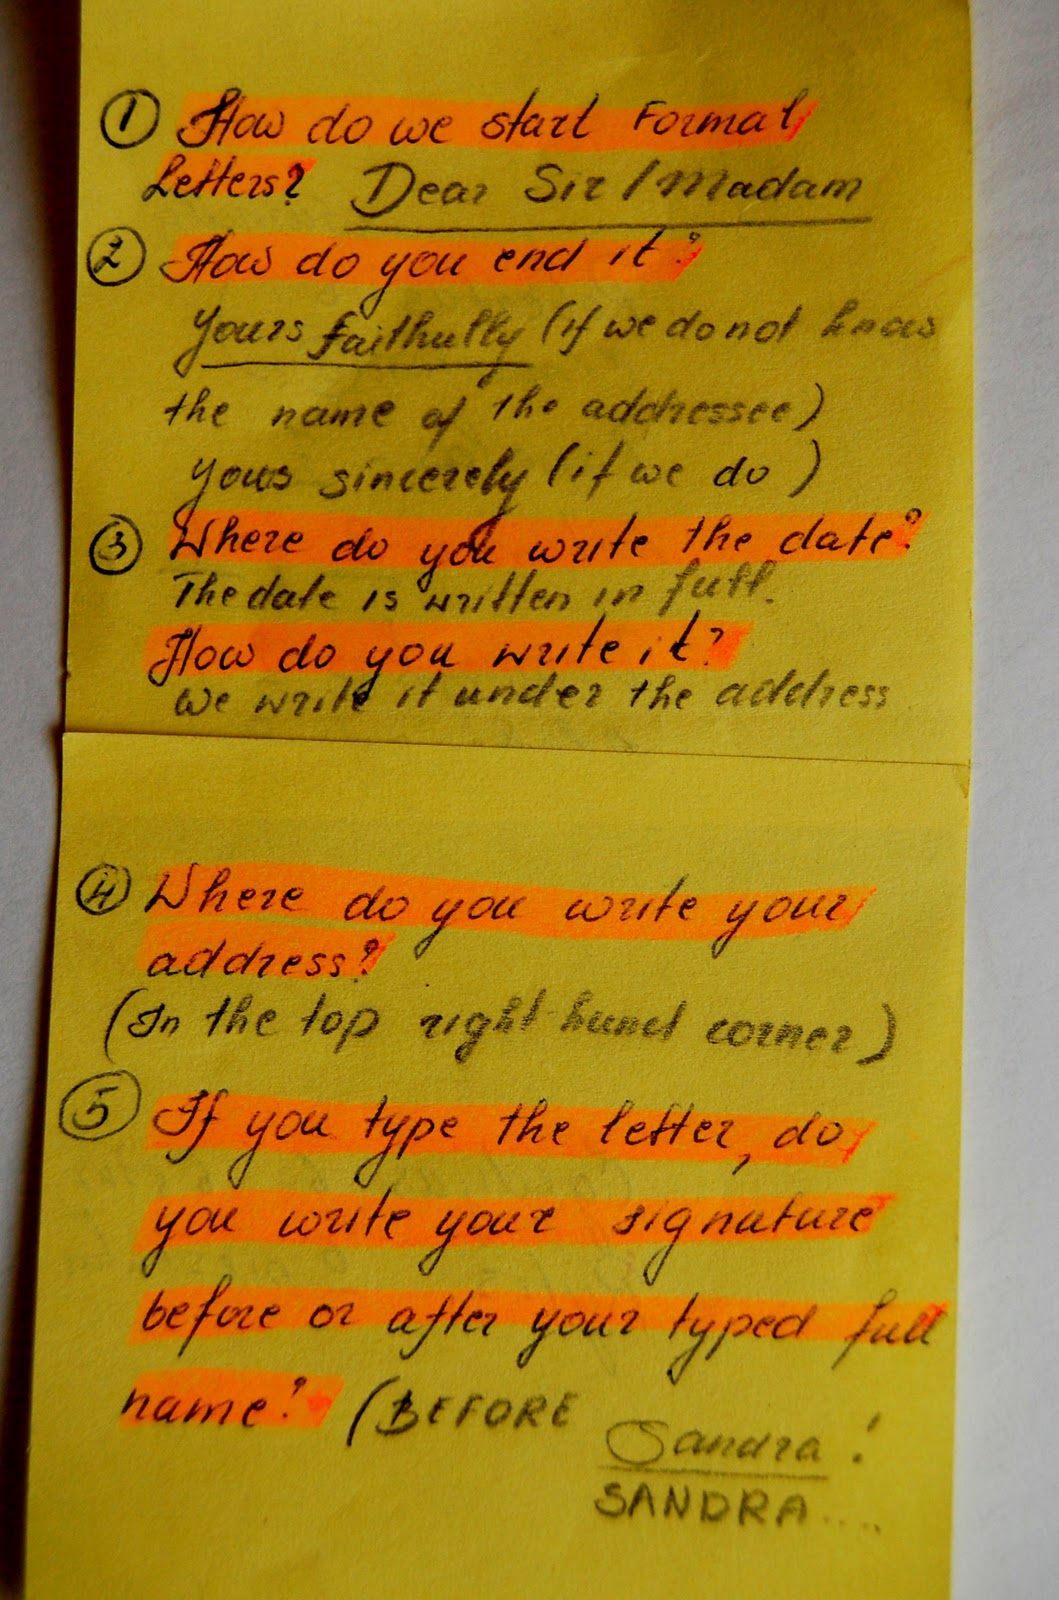 ① How do we start Formal
Letters? Dear Sir / Madam
② How do you end it?
Yours faithhully (if we do not know
the name of the addressee)
yous sincerely (if we do)
③ Where do you write the date?
The date is written in full.
How do you write it?
We write it under the address
④ Where do you write your
address?
(In the top right hand corner)
⑤ If you type the letter, do
you write your signature
before or after your typed full
name? (BEFORE
Sandra!
SANDRA....